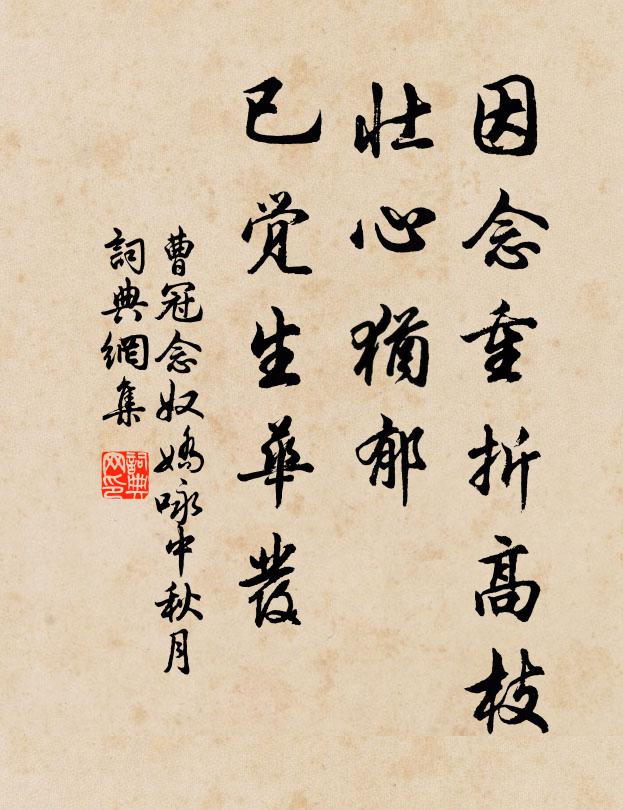 因念重折高枝
壮心猶郁
已觉生華發
曹冠念奴嬌咏中秋月
詞典網集
詞典网印